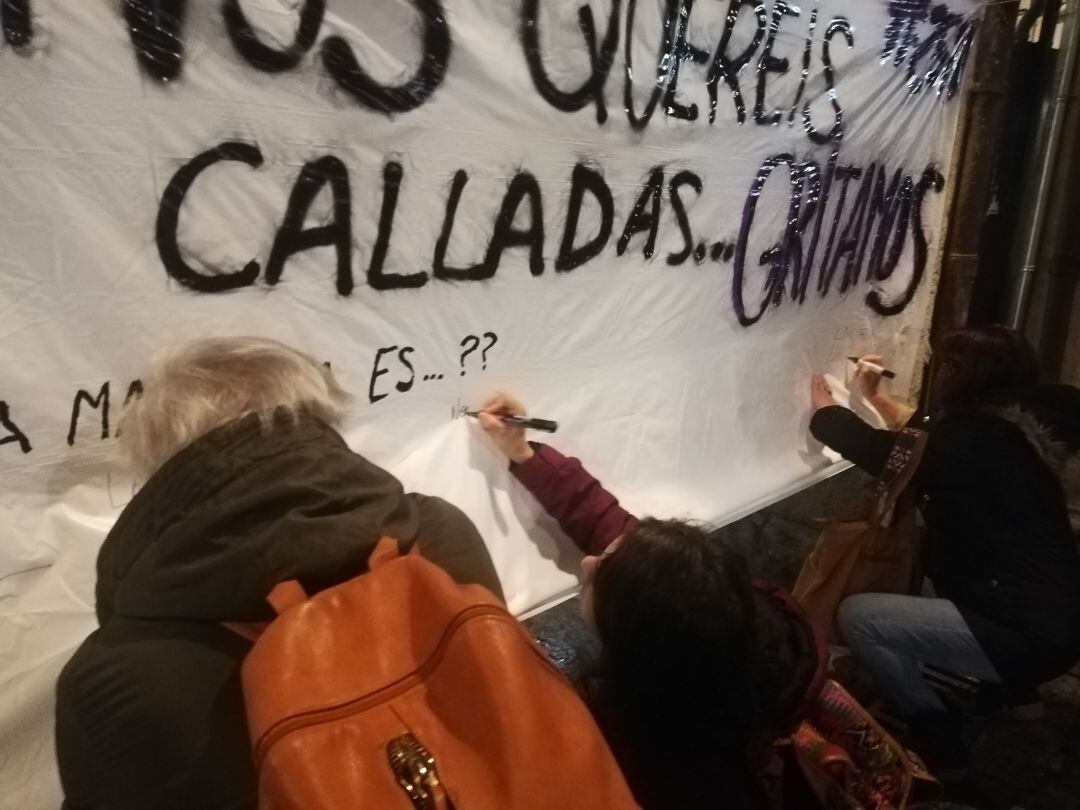 NOS QUEREIS
CALLADAS... GRITAMOS
A MA ES...??